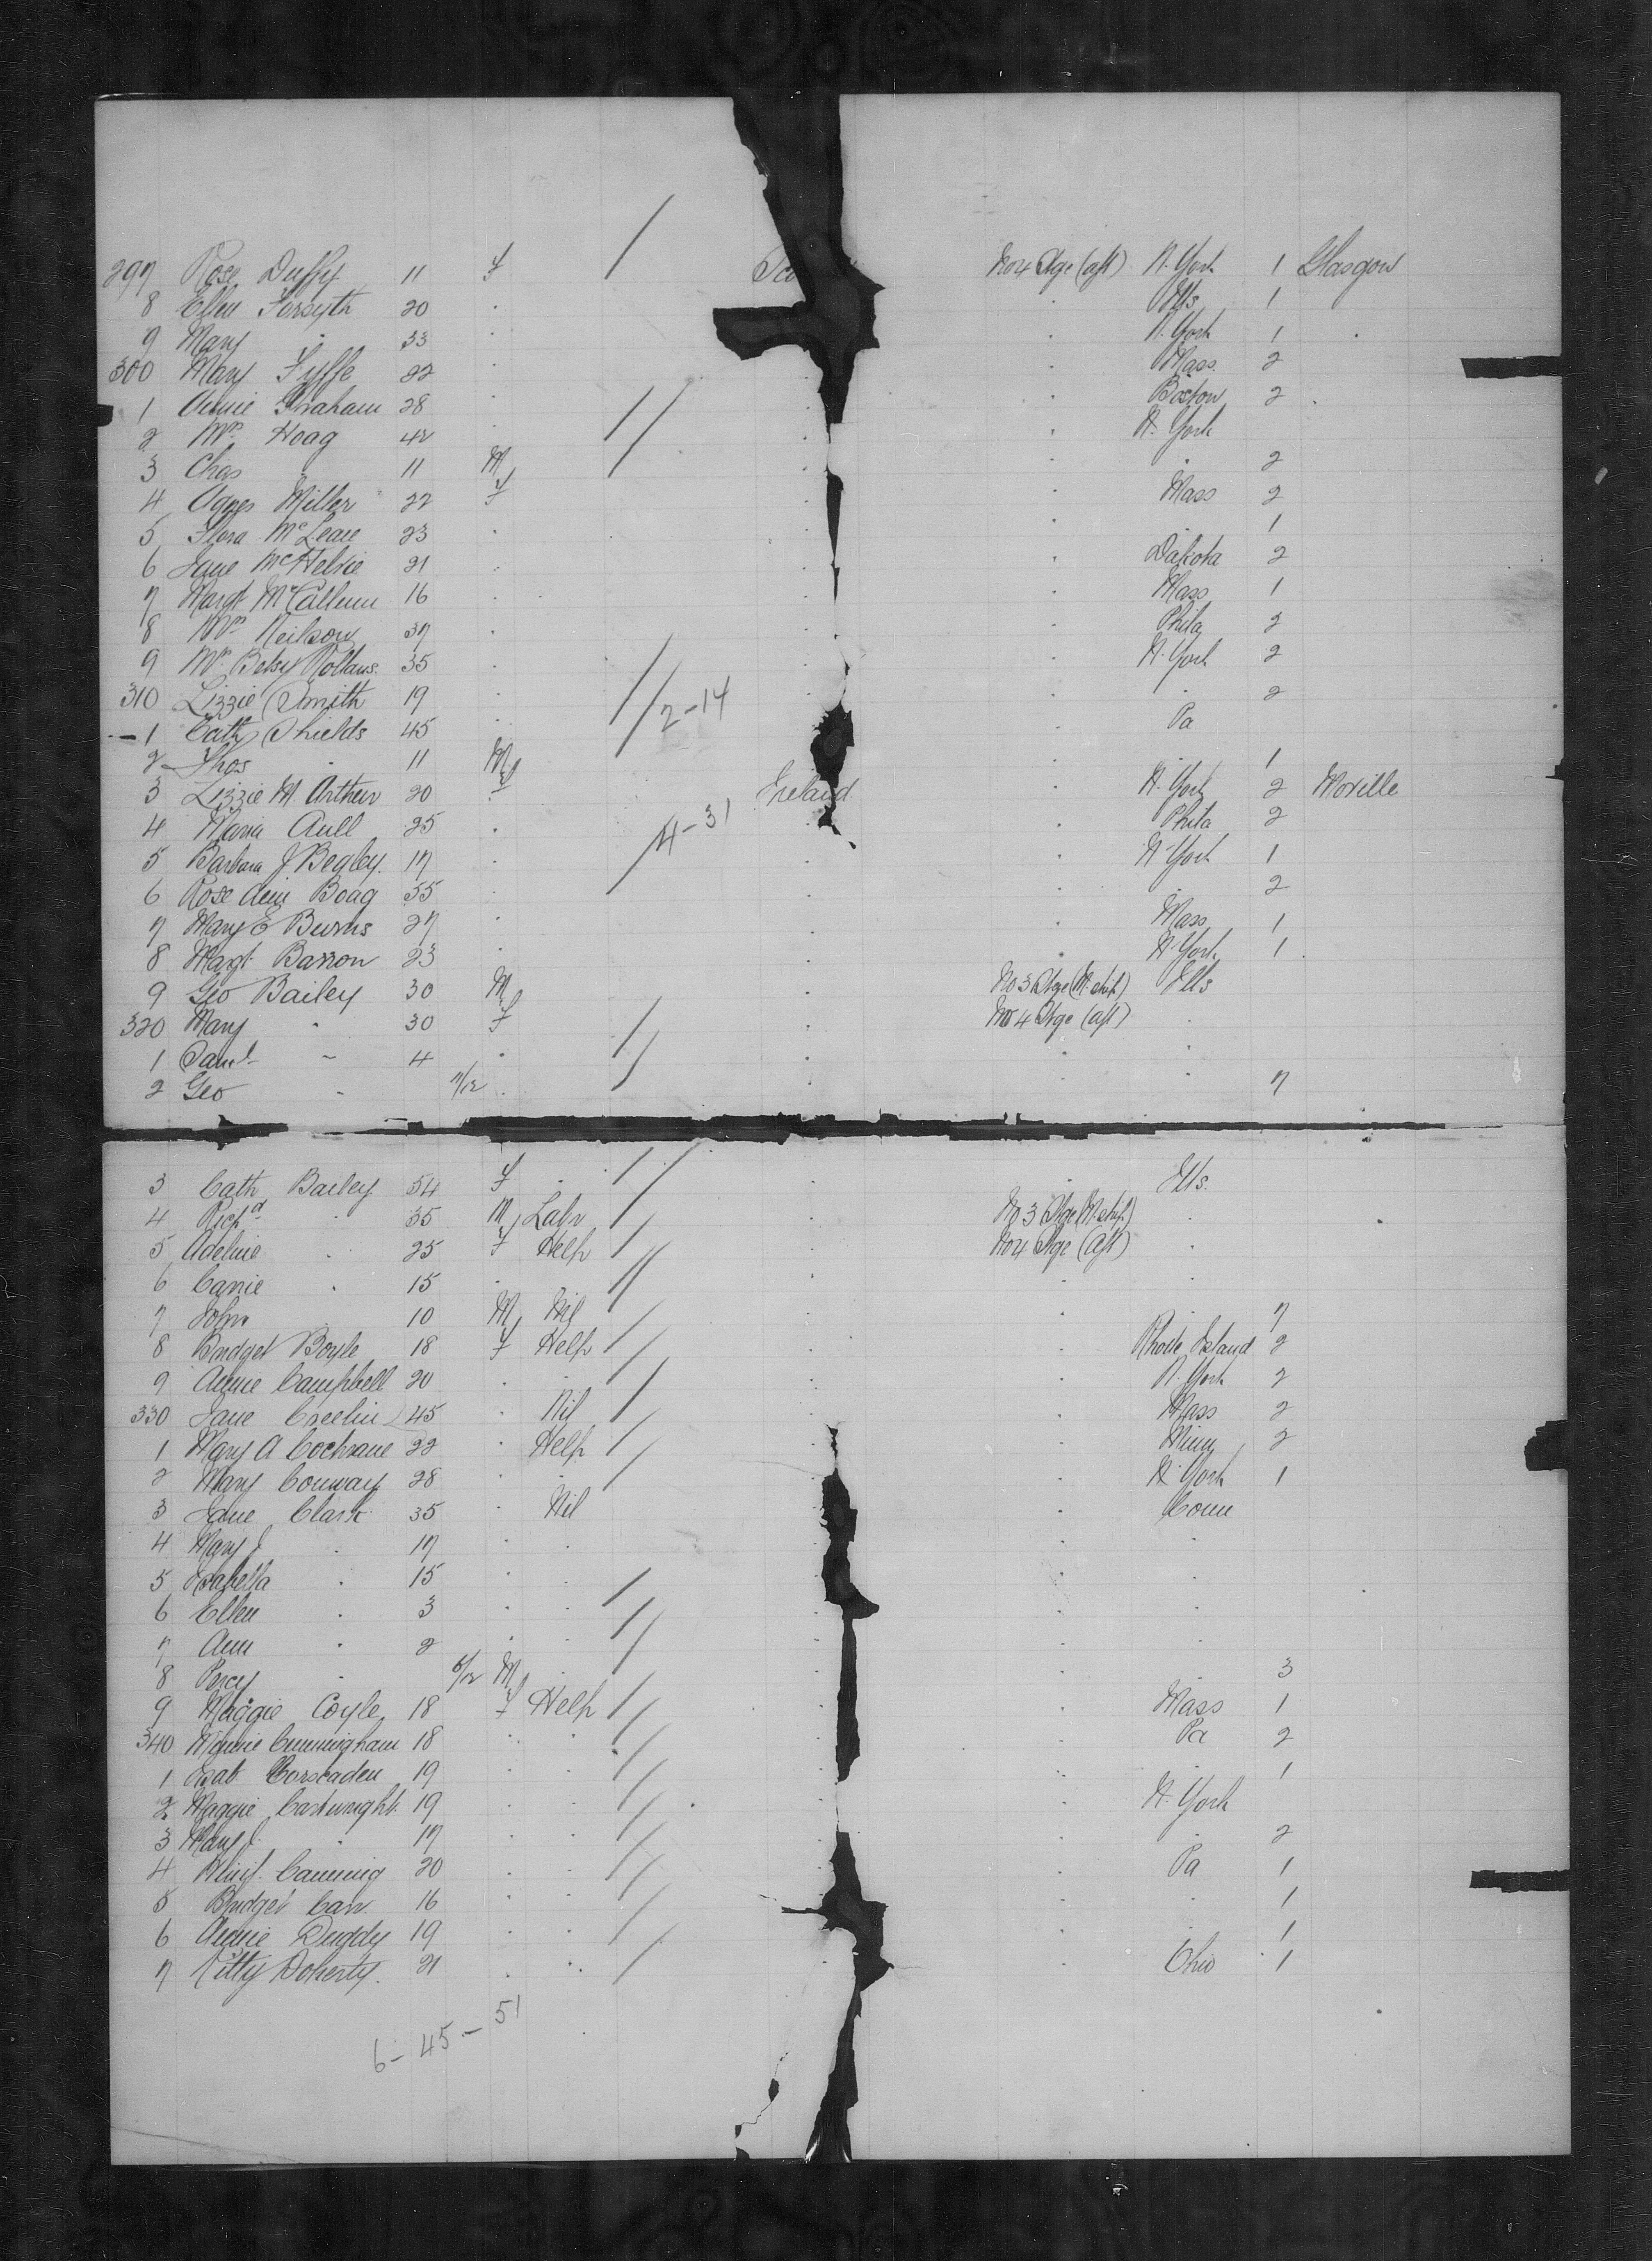 297 Rose Duffy 11 F / Sco No 4 Stge (aft) N. York 1 Glasgow
8 Ellen Forsyth 20 . . Ills 1
9 Mary . 33 . . N. York 1 .
300 Mary Fyffe 22 . . Mass 2
1 Annie Graham 28 . / . . Boston 2 .
2 Mrs Hoag 42 . / . . N. York
3 Chas . 11 M . . . 2
4 Agnes Miller 22 F . . Mass 2
5 Flora McLean 23 . . . 1
6 Jane 21 . . . Dakota 2
7 Margt McCallum 16 . . . Mass 1
8 Mrs Neilson 37 . . . Phila 2
9 Mrs Betsy 35 . / . . N. York 2
310 Lizzie Smith 19 . / 2-14 . . . 2
1 Cath Shields 45 . . Pa
2 Thos . 11 M . . 1
3 Lizzie M. Arthur 20 F Ireland . N. York 2 Moville
4 Maria Aull 25 . 4-31 . Phila 2
5 Barbara J. Begley 17 . / . . N. York 1
6 Rose Ann Boag 55 . . . . 2
7 Mary E Burns 27 . . . Mass 1
8 Margt Barron 23 . . . N. York 1
9 Geo Bailey 30 M . No 3 Stge (M. ship) Ills
320 Mary . 30 F / . No 4 Stge (aft) .
1 Saml . 4 . / . . .
2 Geo . 7/12 . . . . 7
3 Cath Bailey 54 F . / . . Ills.
4 Richd . 35 M Labr / . No 3 Stge (M. ship) .
5 Adeline . 25 F Help / . No 4 Stge (Aft) .
6 Carrie . 15 . . / . . .
7 John . 10 M Nil / . . . 7
8 Bridget Boyle 18 F Help / . . Rhode Island 2
9 Annie Campbell 20 . . / . . N. York 2
330 Jane 45 . Nil / . . Mass 2
1 Mary A Cochrane 22 . Help / . . Minn 2
2 Mary Conway 28 . . / . N. York 1
3 Jane Clark 35 . Nil . Conn
4 Mary J . 17 . . . .
5 Isabella . 15 . . / . .
6 Ellen . 3 . . / . . .
7 Ann . 2 . . / . . .
8 Percy . 6/12 M . . . 3
9 Maggie Coyle 18 F Help / . . Mass 1
340 Minnie Cunningham 18 . . / . Pa 2
1 Isab Corscaden 19 . . / . . 1
2 Maggie Cartwright 19 . . / . N. York
3 Mary J. . 17 . . / . . 2
4 Canning 20 . . / . Pa 1
5 Bridget Carr 16 . . / . . 1
6 Annie Duddy 19 . . / . . 1
7 Kitty Doherty. 21 . . / . . Ohio 1
6-45-51